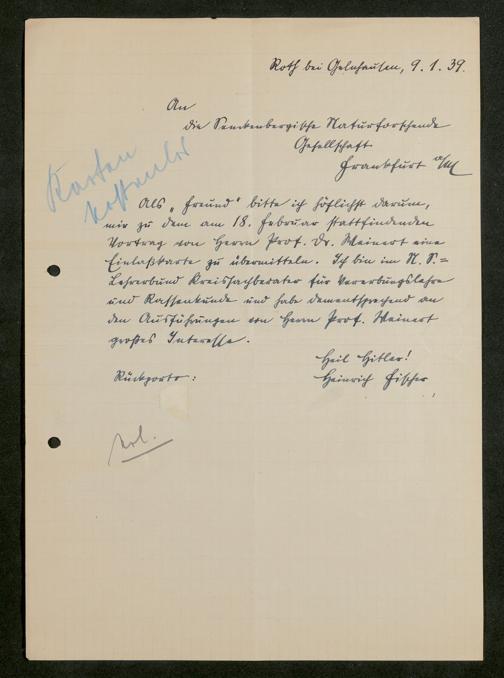 Roth bei Gelnhausen, 9. 1. 39.
An
die Senckenbergische Naturforschende
Gesellschaft
Frankfurt a/M
Karten
kostenlos
Als „Freund“ bitte ich höflichst darum,
mir zu dem am 18. Februar stattfindenden
Vortrag von Herrn Prof. Dr. Weinert eine
Einlaßkarte zu übermitteln. Ich bin im N. S.=
Lehrerbund Kreisfachberater für Vererbungslehre
und Rassenkunde und habe dementsprechend an
den Ausführungen von Herrn Prof. Weinert
großes Interesse.
Heil Hitler!
Rückporto:
Heinrich Fischer
erl.